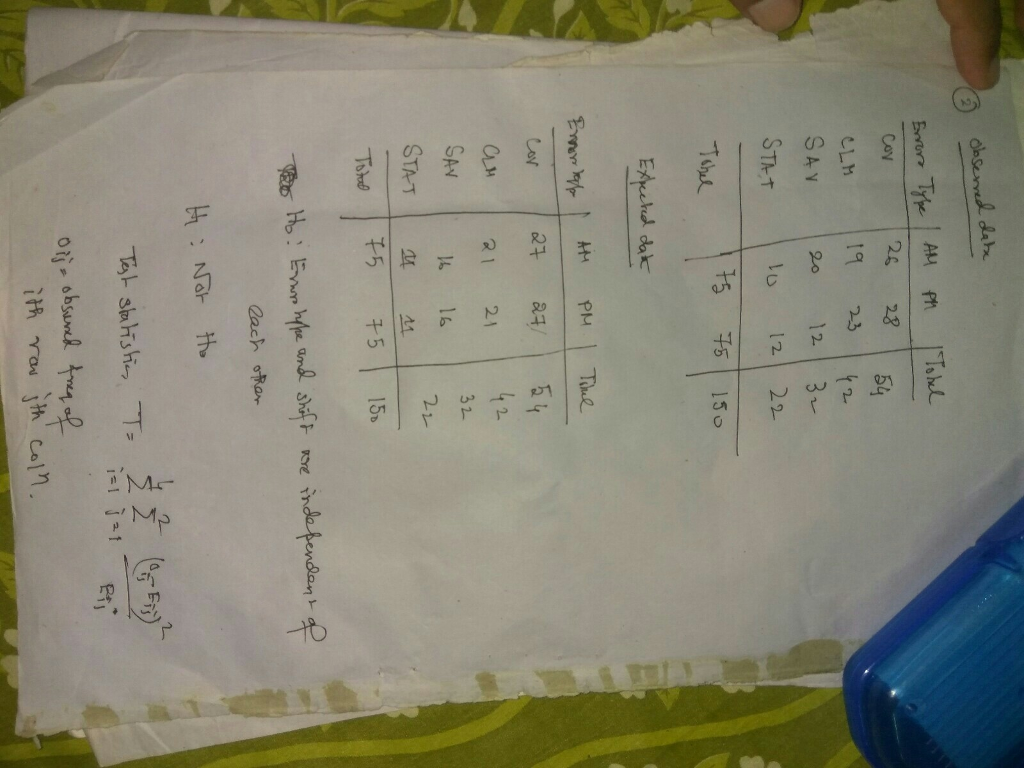 2 Observed data
Error Type AM PM Total
COV 26 28 54
CLM 19 23 42
SAV 20 12 32
STAT 10 12 22
Total 75 75 150
Expected data
Error type AM PM Total
COV 27 27 54
CLM 21 21 42
SAV 16 16 32
STAT 11 11 22
Total 75 75 150
H0 : Error type and shift are independent of
each other
H1 : Not H0
Test statistics, T = 4 Σ i=1 2 Σ j=1 (Oij - Eij)2 / Eij
Oij = observed freq of
ith row jth coln.